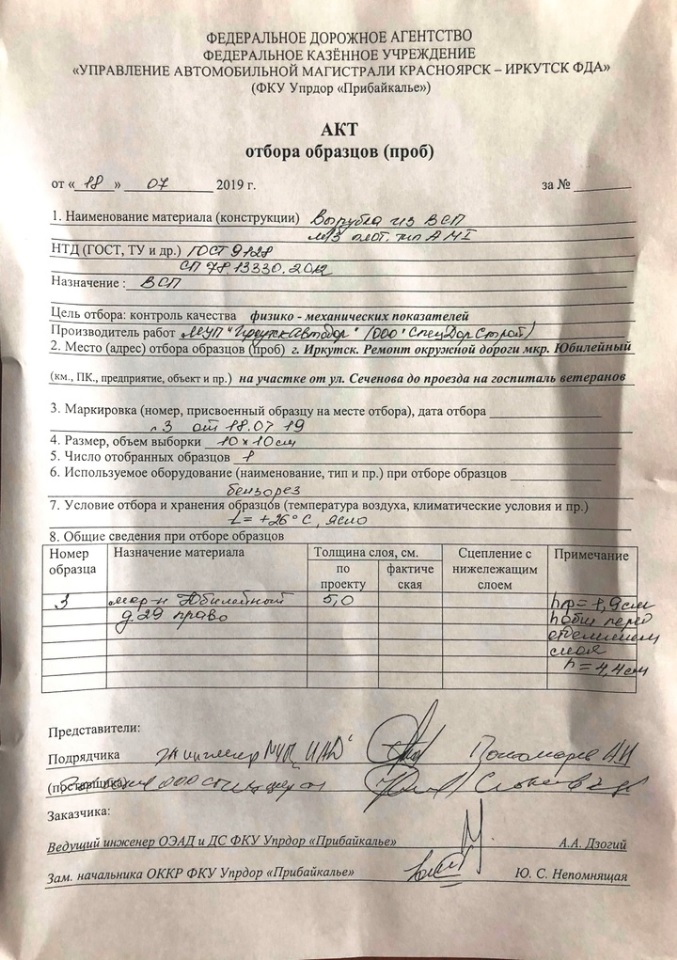 ФЕДЕРАЛЬНОЕ ДОРОЖНОЕ АГЕНТСТВО
ФЕДЕРАЛЬНОЕ КАЗЁННОЕ УЧРЕЖДЕНИЕ
«УПРАВЛЕНИЕ АВТОМОБИЛЬНОЙ МАГИСТРАЛИ КРАСНОЯРСК – ИРКУТСК ФДА»
(ФКУ Упрдор «Прибайкалье»)
АКТ
отбора образцов (проб)
от « 18 » 07 2019 г. за №
1. Наименование материала (конструкции) Вырубка из ВСП
м/з плот. тип А МI
НТД (ГОСТ, ТУ и др.) ГОСТ 9128
СП 78.13330.2012
Назначение : ВСП
Цель отбора: контроль качества физико - механических показателей
Производитель работ МУП "Иркутскавтодор" (ООО "СпецДорСтрой)
2. Место (адрес) отбора образцов (проб) г. Иркутск. Ремонт окружной дороги мкр. Юбилейный
(км., ПК., предприятие, объект и пр.) на участке от ул. Сеченова до проезда на госпиталь ветеранов
3. Маркировка (номер, присвоенный образцу на месте отбора), дата отбора
3 от 18.07 19
4. Размер, объем выборки 10 x 10 см
5. Число отобранных образцов 1
6. Используемое оборудование (наименование, тип и пр.) при отборе образцов
бензорез
7. Условие отбора и хранения образцов (температура воздуха, климатические условия и пр.)
t = +26° С, ясно
8. Общие сведения при отборе образцов
Номер образца Назначение материала Толщина слоя, см. Сцепление с нижележащим слоем Примечание
по проекту фактиче ская
3 мкр-н Юбилейный 5,0 hф = 1,9 см
д. 29 право hобщ перед
отделением
слоя
h = 4,4 см
Представители:
Подрядчика инженер МУП Пономарев А.И
(поставщика) ООО
Заказчика:
Ведущий инженер ОЭАД и ДС ФКУ Упрдор «Прибайкалье» А.А. Дзогий
Зам. начальника ОККР ФКУ Упрдор «Прибайкалье» Ю. С. Непомнящая